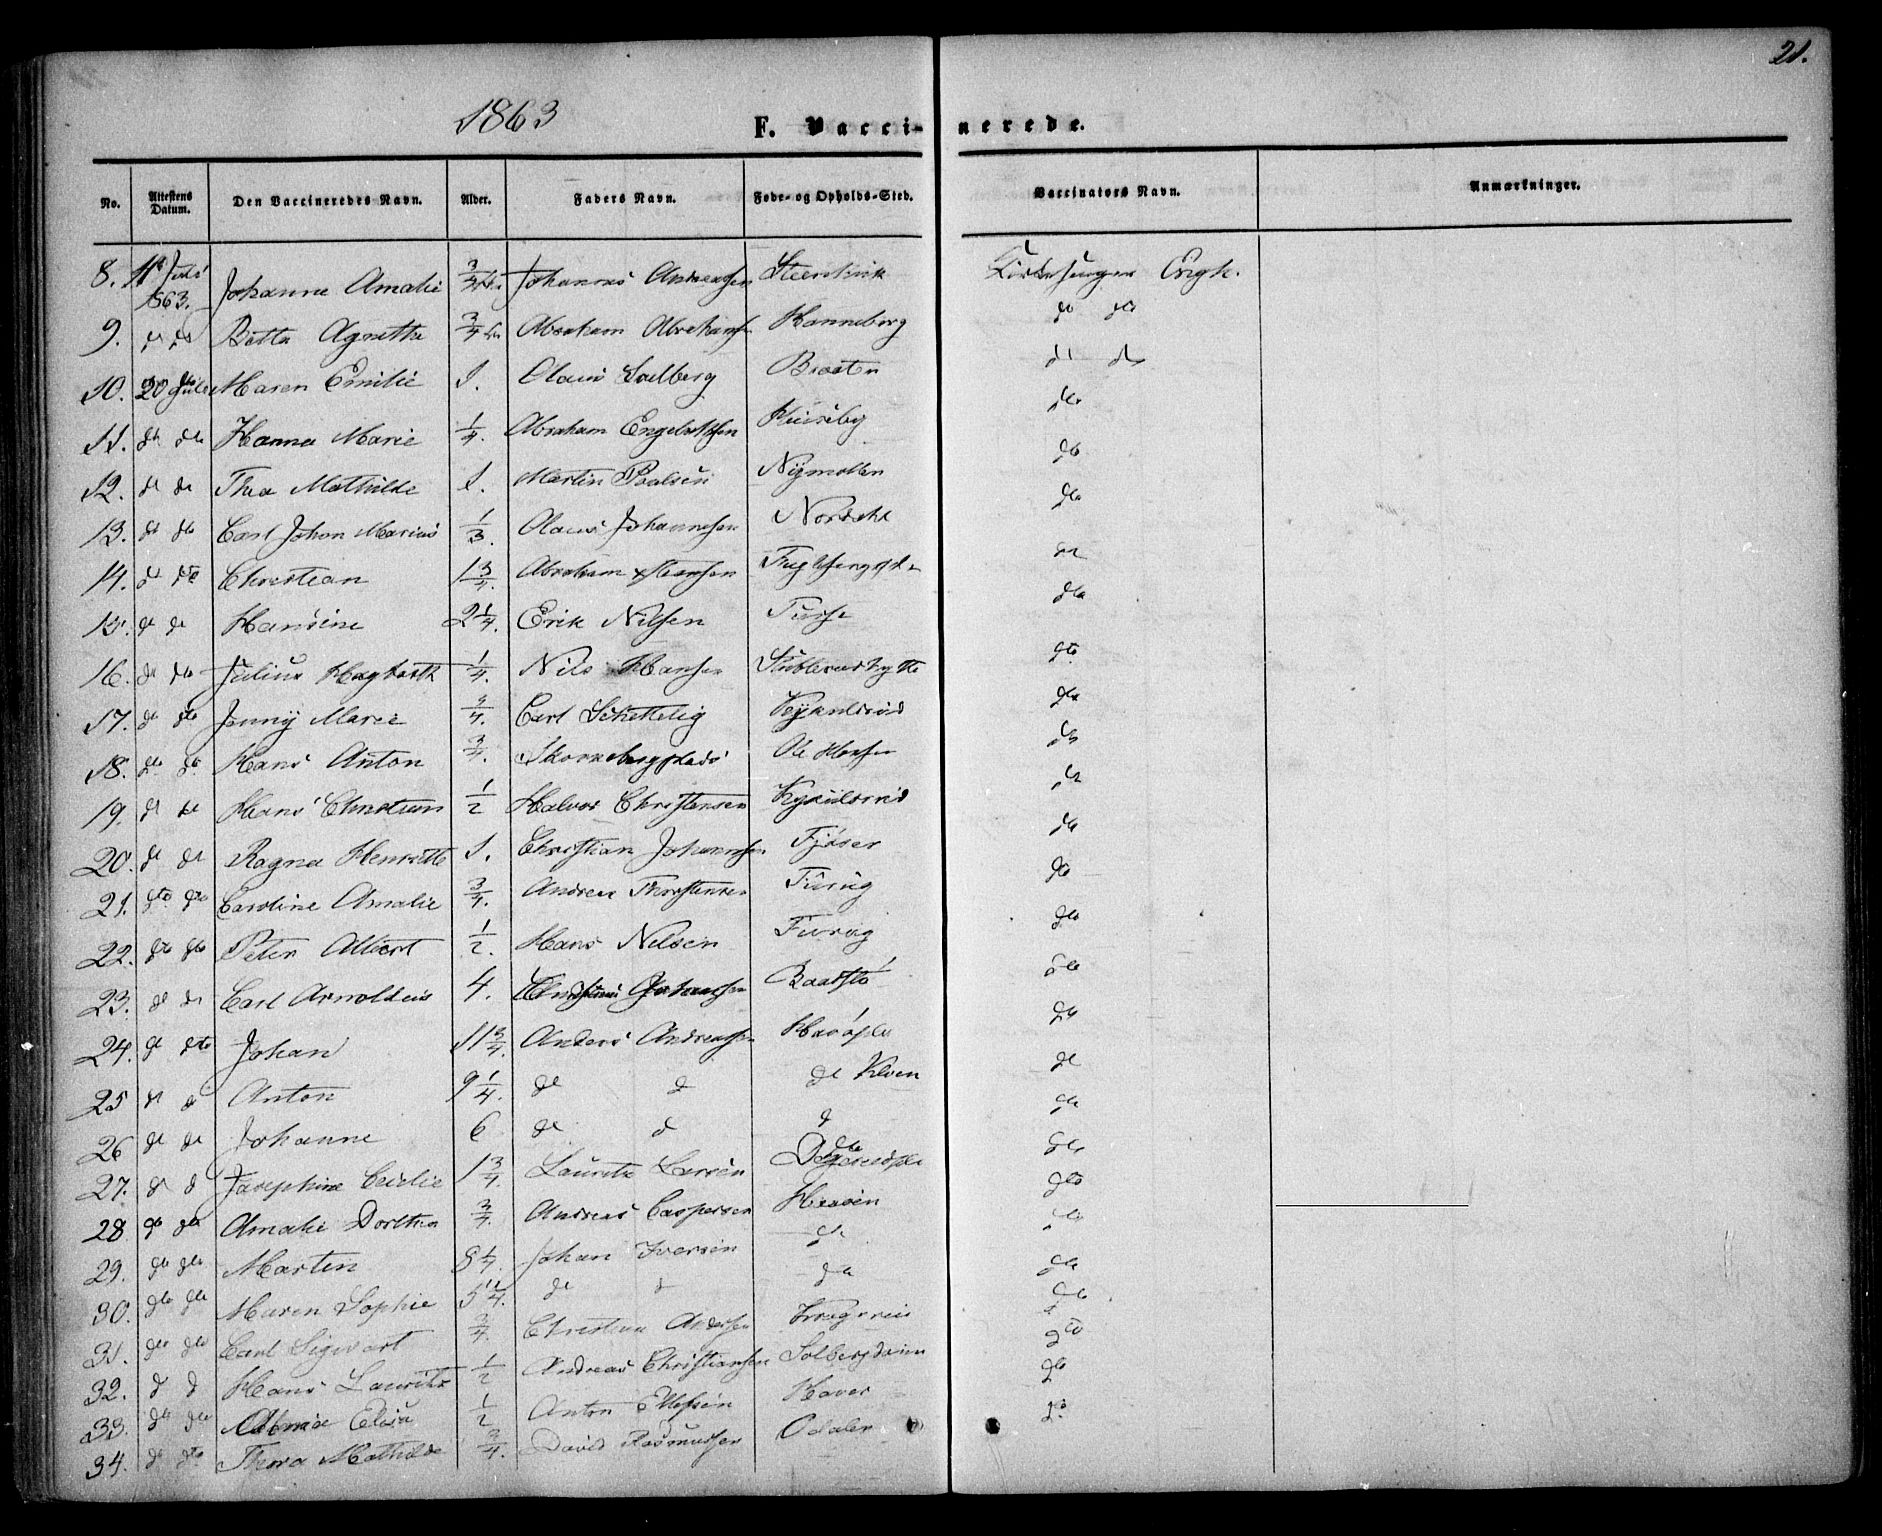 21.
1863
F. Vaccinerede.
No. Attestens Datum. Den Vaccineredes Navn. Alder. Faders Navn. Føde- og Opholds-Sted. Vaccinators Navn. Anmærkninger.
8. 11 1863. Johanne Amalie 3/4 Johannes Andreassen Kirkesanger Engh.
9. do do Agnethe 3/4 Abraham Abrahamsen Kanneborg do do
10. 20 Juli Maren Emilie 1. Olaus Solberg Braaten do do
11. do do Hanna Marie 1/4. Abraham Engebretsen Huseby do
12. do do Thea Mathilde 1. Martin Paulsen Nymollen do
13. do do Carl Johan Marius 1/3. Olaus Johannesen do
14. do do Christian 1 3/4. Abraham Hansen do
15. do do Hansine 2 1/4. Erik Nilsen do
16. do do Julius 1/4. Nils Hansen do
17. do do Jenny Marie 3/4. Carl Schettelig Kykelsrød do
18. do do Hans Anton 3/4. Skornebergplads Ole Hansen do
19. do do Hans Christian 1/2 Halvor Christensen Kykelsrød do
20. do do Ragna Henriette 1. Christian Johannsen Fjøser do
21. do do Caroline Amalie 3/4. Andreas Thorstensen do
22. do do Peter Albert 1/2. Hans Nilsen do
23. do do Carl Arnoldus 4. Johansen do
24. do do Johan 11 3/4. Anders Andreassen do
25 do d Anton 9 1/4. do d do do
26 do do Johanne 6 do d d do
27. do d Josephine Cecilie 1 3/4. Lauritz Larsen do
28 do do Amalie Dorthea 3/4. Andreas Caspersen do
29. do do Martin 8 1/4. Johan Iversen do do
30. do do Maren Sophie 5 1/4. do d do do
31. do do Carl Sigvart 3/4. Christian Andersen do
32. d d Hans Lauritz 1/2 Andreas Christiansen do
33. do do 1/2 Anton Ellefsen Haver do
34. do do Thora Mathilde 3/4. David Rasmussen Odaler do